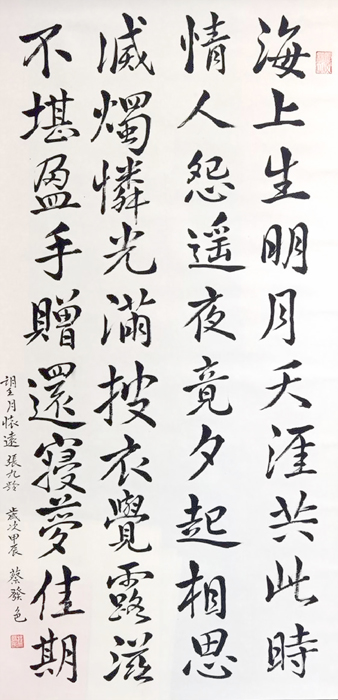 海上生明月天涯共此時
情人怨遥夜竟夕起相思
滅燭憐光滿披衣覺露滋
不堪盈手贈還寢夢佳期
望月懷遠 張九齡 歲次甲辰 蔡發色